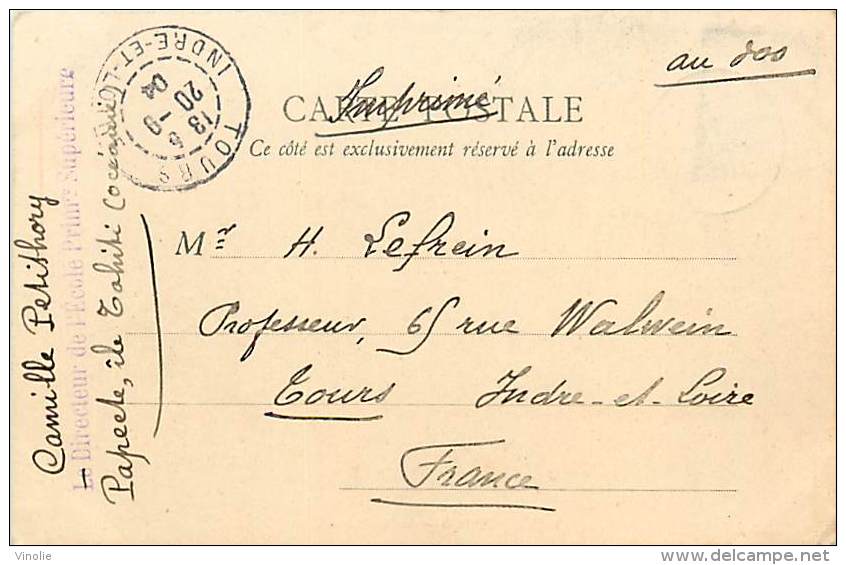 au dos
CARTE POSTALE
Imprimé
Ce côté est exclusivement réservé à l'adresse
Mr H. Lefrein
Professeur, 65 rue Walwein
Tours Indre-et-Loire
France
Camille Petithory
Le Directeur de l'École Primre Supérieure
Papeete, île Tahiti (Océanie)
TOURS
INDRE-ET-LOIRE
13
20
04
Vinolie
delcampe.net